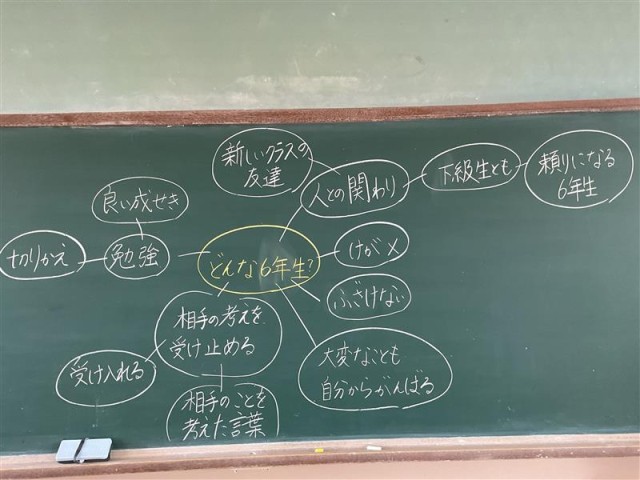 新しいクラスの
友達
人との関わり
下級生とも
頼りになる
6年生
良い成せき
切りかえ
勉強
どんな6年生?
けが×
ふざけない
相手の考えを
受け止める
大変なことも
自分からがんばる
受け入れる
相手のことを
考えた言葉